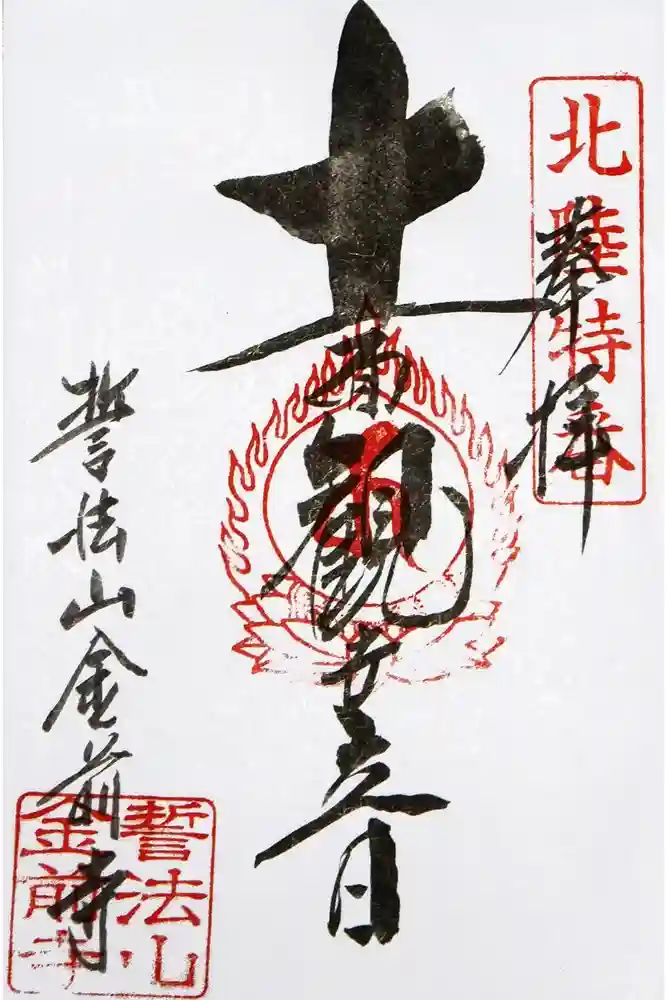 北陸特番
奉拝
十一面観世音
誓法山金前寺
誓法山
金前寺